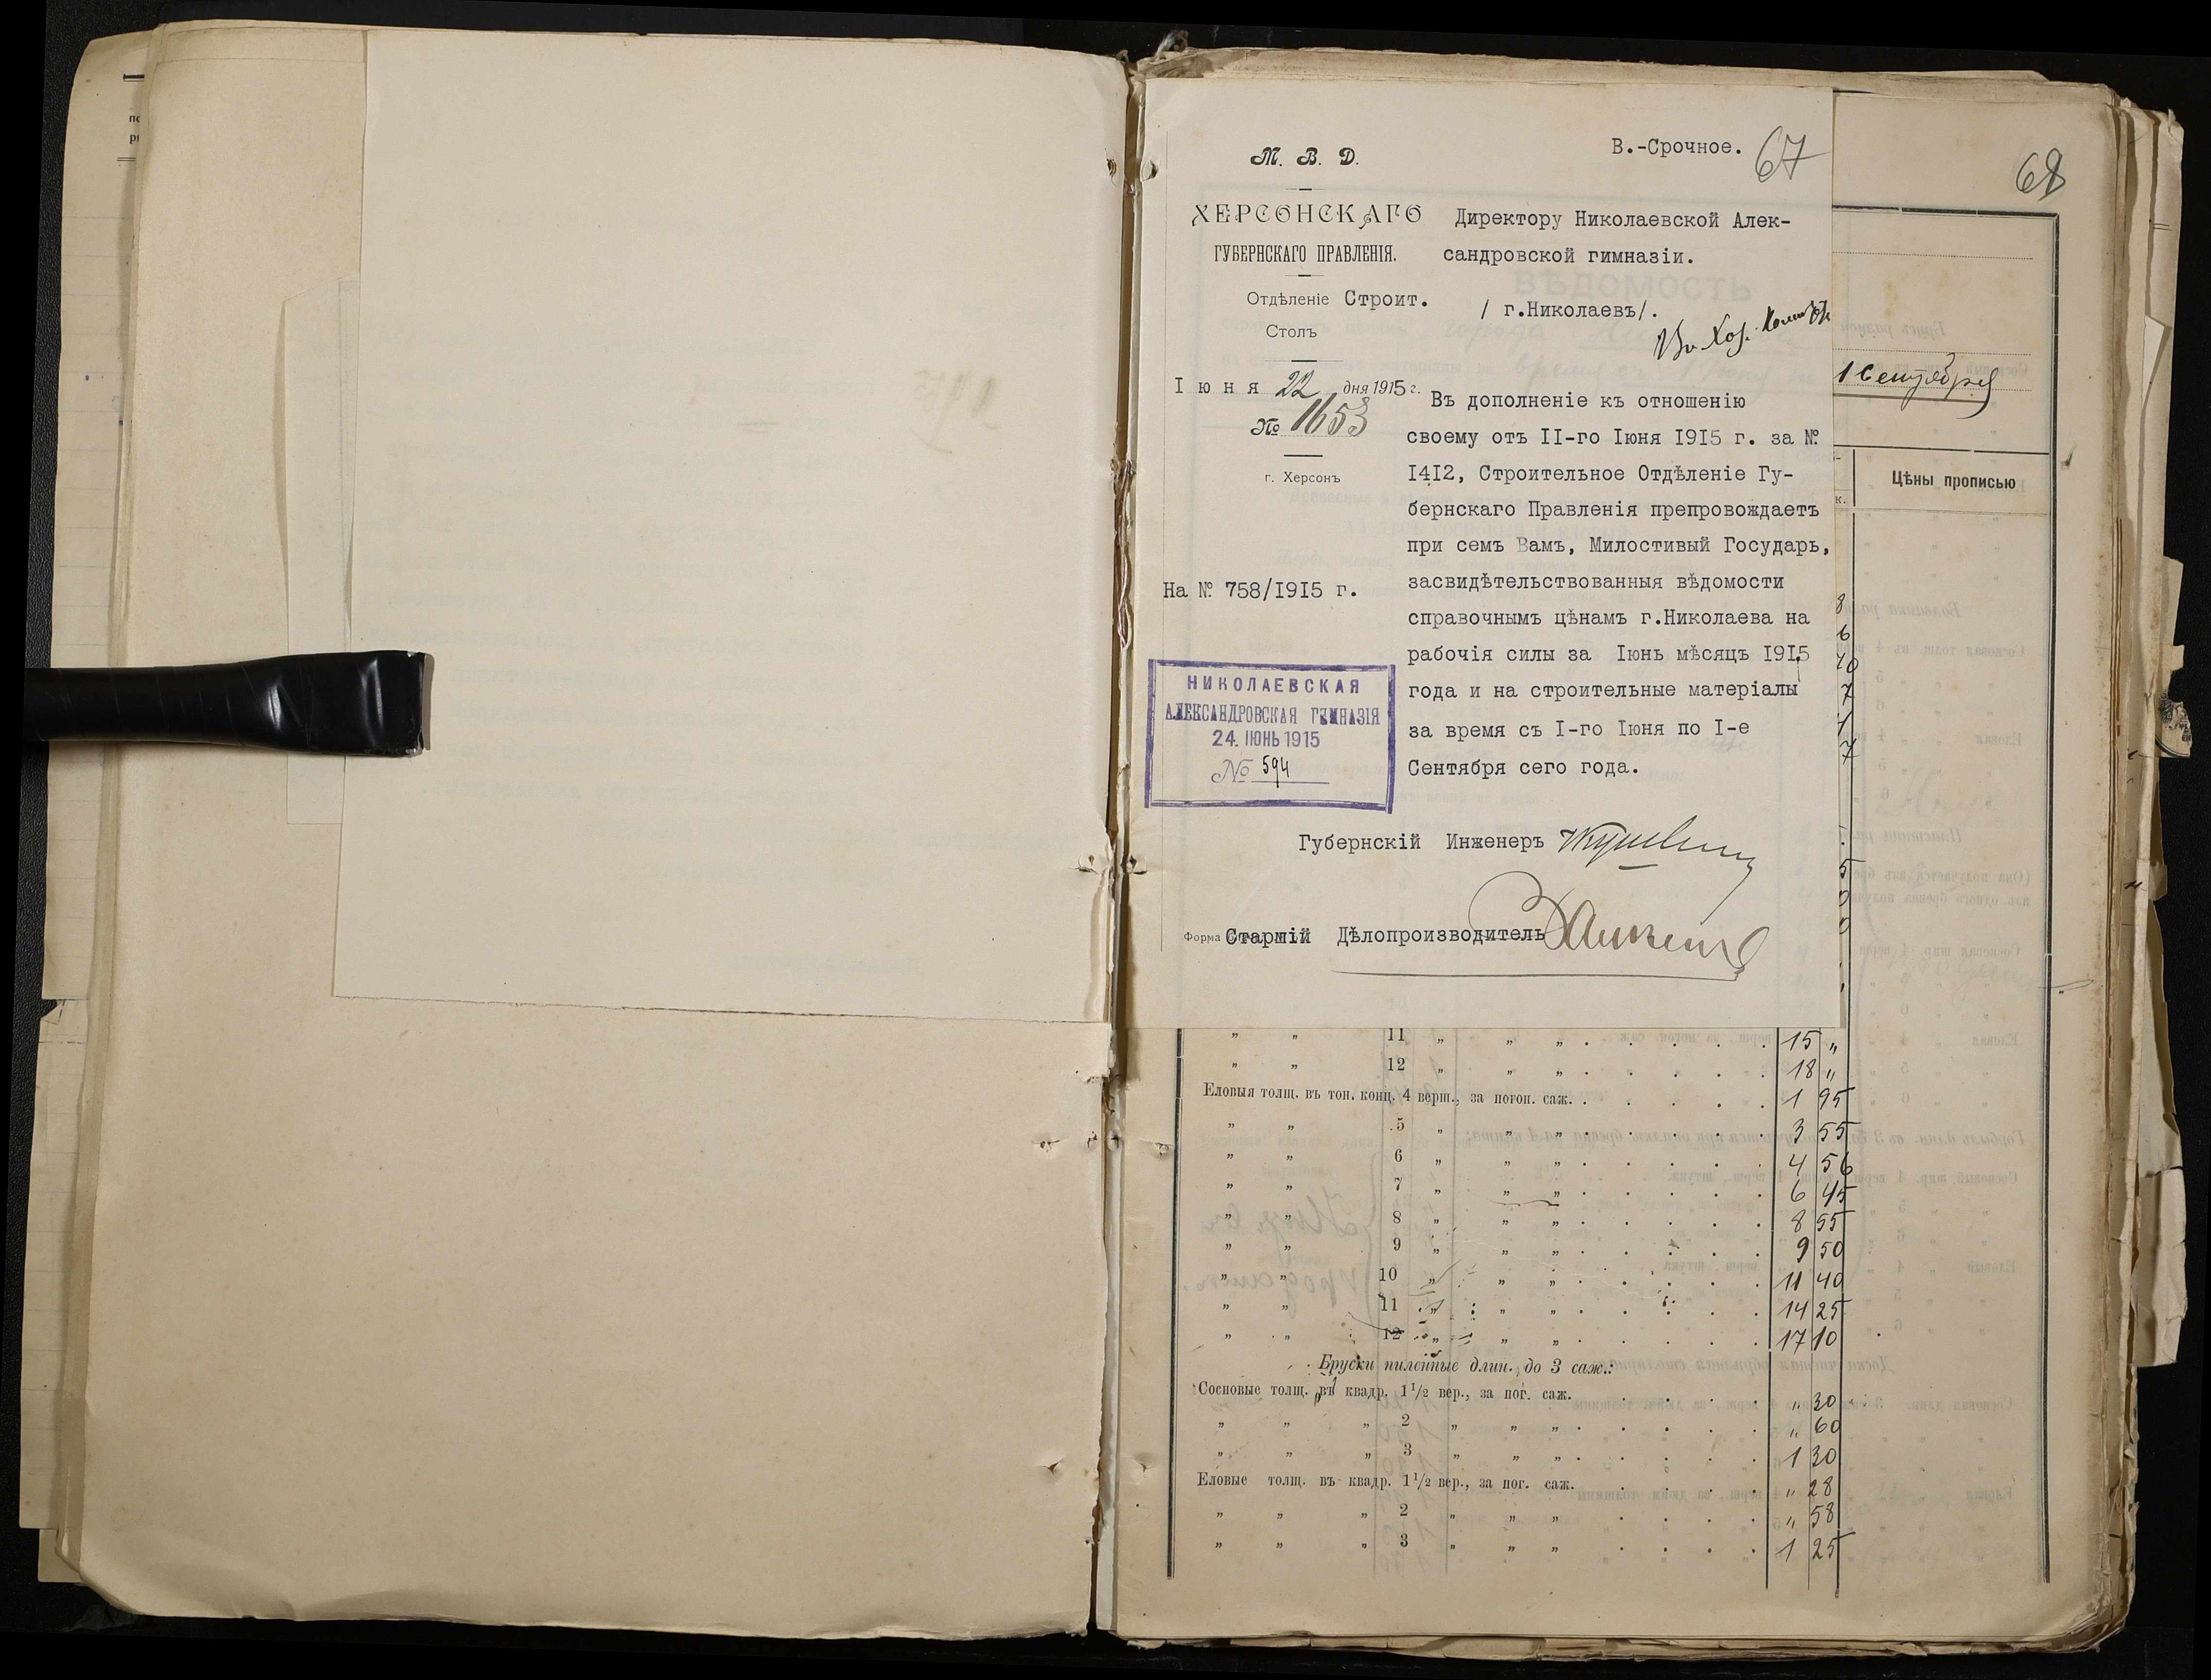 М. В. Д.
В.-Срочное. 67
68
ХЕРСОНСКАГО
ГУБЕРНСКАГО ПРАВЛЕНІЯ.
Отдѣленіе Строит.
Столъ
Іюня 22 дня 1915 г.
№ 1653
г. Херсонъ
На № 758/1915 г.
Директору Николаевской Алек-
сандровской гимназіи.
/ г.Николаевъ/.
Въ дополненіе къ отношенію
своему отъ II-го Іюня 1915 г. за №
1412, Строительное Отдѣленіе Гу-
бернскаго Правленія препровождаетъ
при семъ Вамъ, Милостивый Государь,
засвидѣтельствованныя вѣдомости
справочнымъ цѣнамъ г.Николаева на
рабочія силы за Іюнь мѣсяцъ 1915
года и на строительные матеріалы
за время съ I-го Іюня по I-е
Сентября сего года.
НИКОЛАЕВСКАЯ
АЛЕКСАНДРОВСКАЯ ГИМНАЗІЯ
24. ІЮНЬ 1915
№ 594
Губернскій Инженеръ
Форма
Старшій Дѣлопроизводитель
1 Сентября
Цѣны прописью
к.
8
6
40
7
1
7
5
0
0
„ „ 11 „ „ „ 15 „
„ „ 12 „ „ „ 18 „
Еловыя толщ. въ тон. конц. 4 верш., за погон. саж. 1 95
„ „ 5 „ „ „ 3 55
„ „ 6 „ „ „ 4 56
„ „ 7 „ „ „ 6 45
„ „ 8 „ „ „ 8 55
„ „ 9 „ „ „ 9 50
„ „ 10 „ „ „ 11 40
„ „ 11 „ „ „ 14 25
„ „ 12 „ „ „ 17 10
Бруски пиленные длин. до 3 саж.:
Сосновые толщ. въ квадр. 1 1/2 вер., за пог. саж. „ 30
„ „ „ 2 „ „ „ „ 60
„ „ „ 3 „ „ „ 1 30
Еловые толщ. въ квадр. 1 1/2 вер., за пог. саж. „ 28
„ „ „ 2 „ „ „ „ 58
„ „ „ 3 „ „ „ 1 25